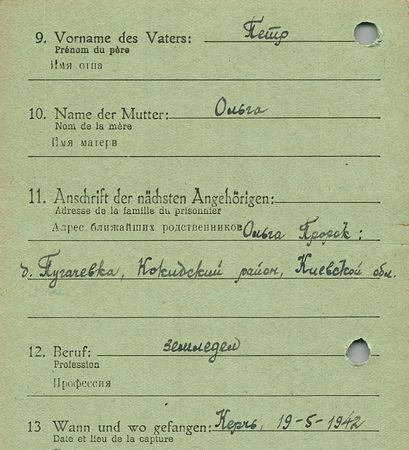 9. Vorname des Vaters: Петр
Prénom du père
Имя отца
10. Name der Mutter: Ольга
Nom de la mère
Имя матери
11. Anschrift der nächsten Angehörigen:
Adresse de la famille du prisonnier
Адрес ближайших родственников Ольга Пророк:
д. Пугачевка, Кокидский район, Киевской обл.
12. Beruf: земледел
Profession
Профессия
13 Wann und wo gefangen: Керчь, 19-5-1942
Date et lieu de la capture